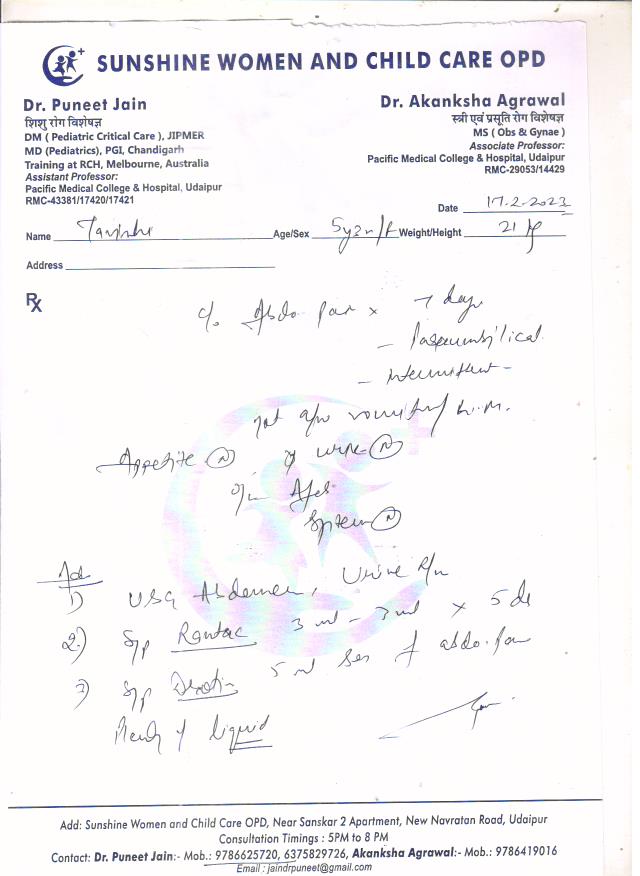 SUNSHINE WOMEN AND CHILD CARE OPD
Dr. Puneet Jain
शिशु रोग विशेषज्ञ
DM ( Pediatric Critical Care ), JIPMER
MD (Pediatrics), PGI, Chandigarh
Training at RCH, Melbourne, Australia
Assistant Professor:
Pacific Medical College & Hospital, Udaipur
RMC-43381/17420/17421
Dr. Akanksha Agrawal
स्त्री एवं प्रसूति रोग विशेषज्ञ
MS ( Obs & Gynae )
Associate Professor:
Pacific Medical College & Hospital, Udaipur
RMC-29053/14429
Date 17.2.2023
Name Age/Sex Weight/Height 21 kg
Address
Rx
c/o Abdo. pain x 7 days
- Intermittent -
not a/w vomiting
Appetite (N)
System (N)
Adv
1) USG Abdomen, Urine R/M
2.) Syp Rantac 3 ml - 3 ml x 5 d
3) Syp 5 ml abdo. pain
Plenty of liquid
Add: Sunshine Women and Child Care OPD, Near Sanskar 2 Apartment, New Navratan Road, Udaipur
Consultation Timings : 5PM to 8 PM
Contact: Dr. Puneet Jain:- Mob.: 9786625720, 6375829726, Akanksha Agrawal:- Mob.: 9786419016
Email : jaindrpuneet@gmail.com